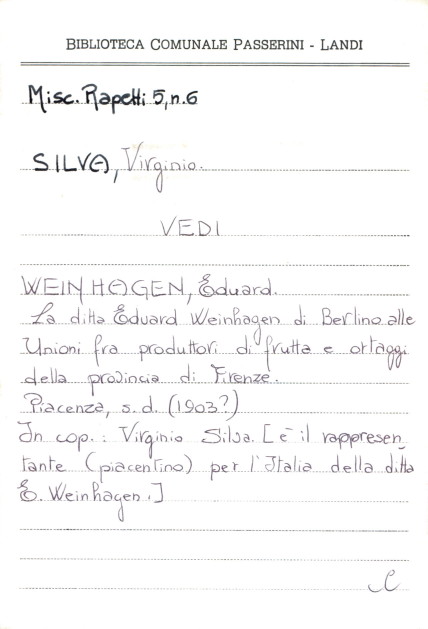 BIBLIOTECA COMUNALE PASSERINI - LANDI
Misc. Rapetti 5, n. 6
SILVA, Virginio.
VEDI
WEINHAGEN, Eduard.
La ditta Eduard Weinhagen di Berlino alle
Unioni fra produttori di frutta e ortaggi
della provincia di Firenze.
Piacenza, s. d. (1903?)
In cop.: Virginio Silva. [è il rappresen_
tante (piacentino) per l'Italia della ditta
E. Weinhagen.]